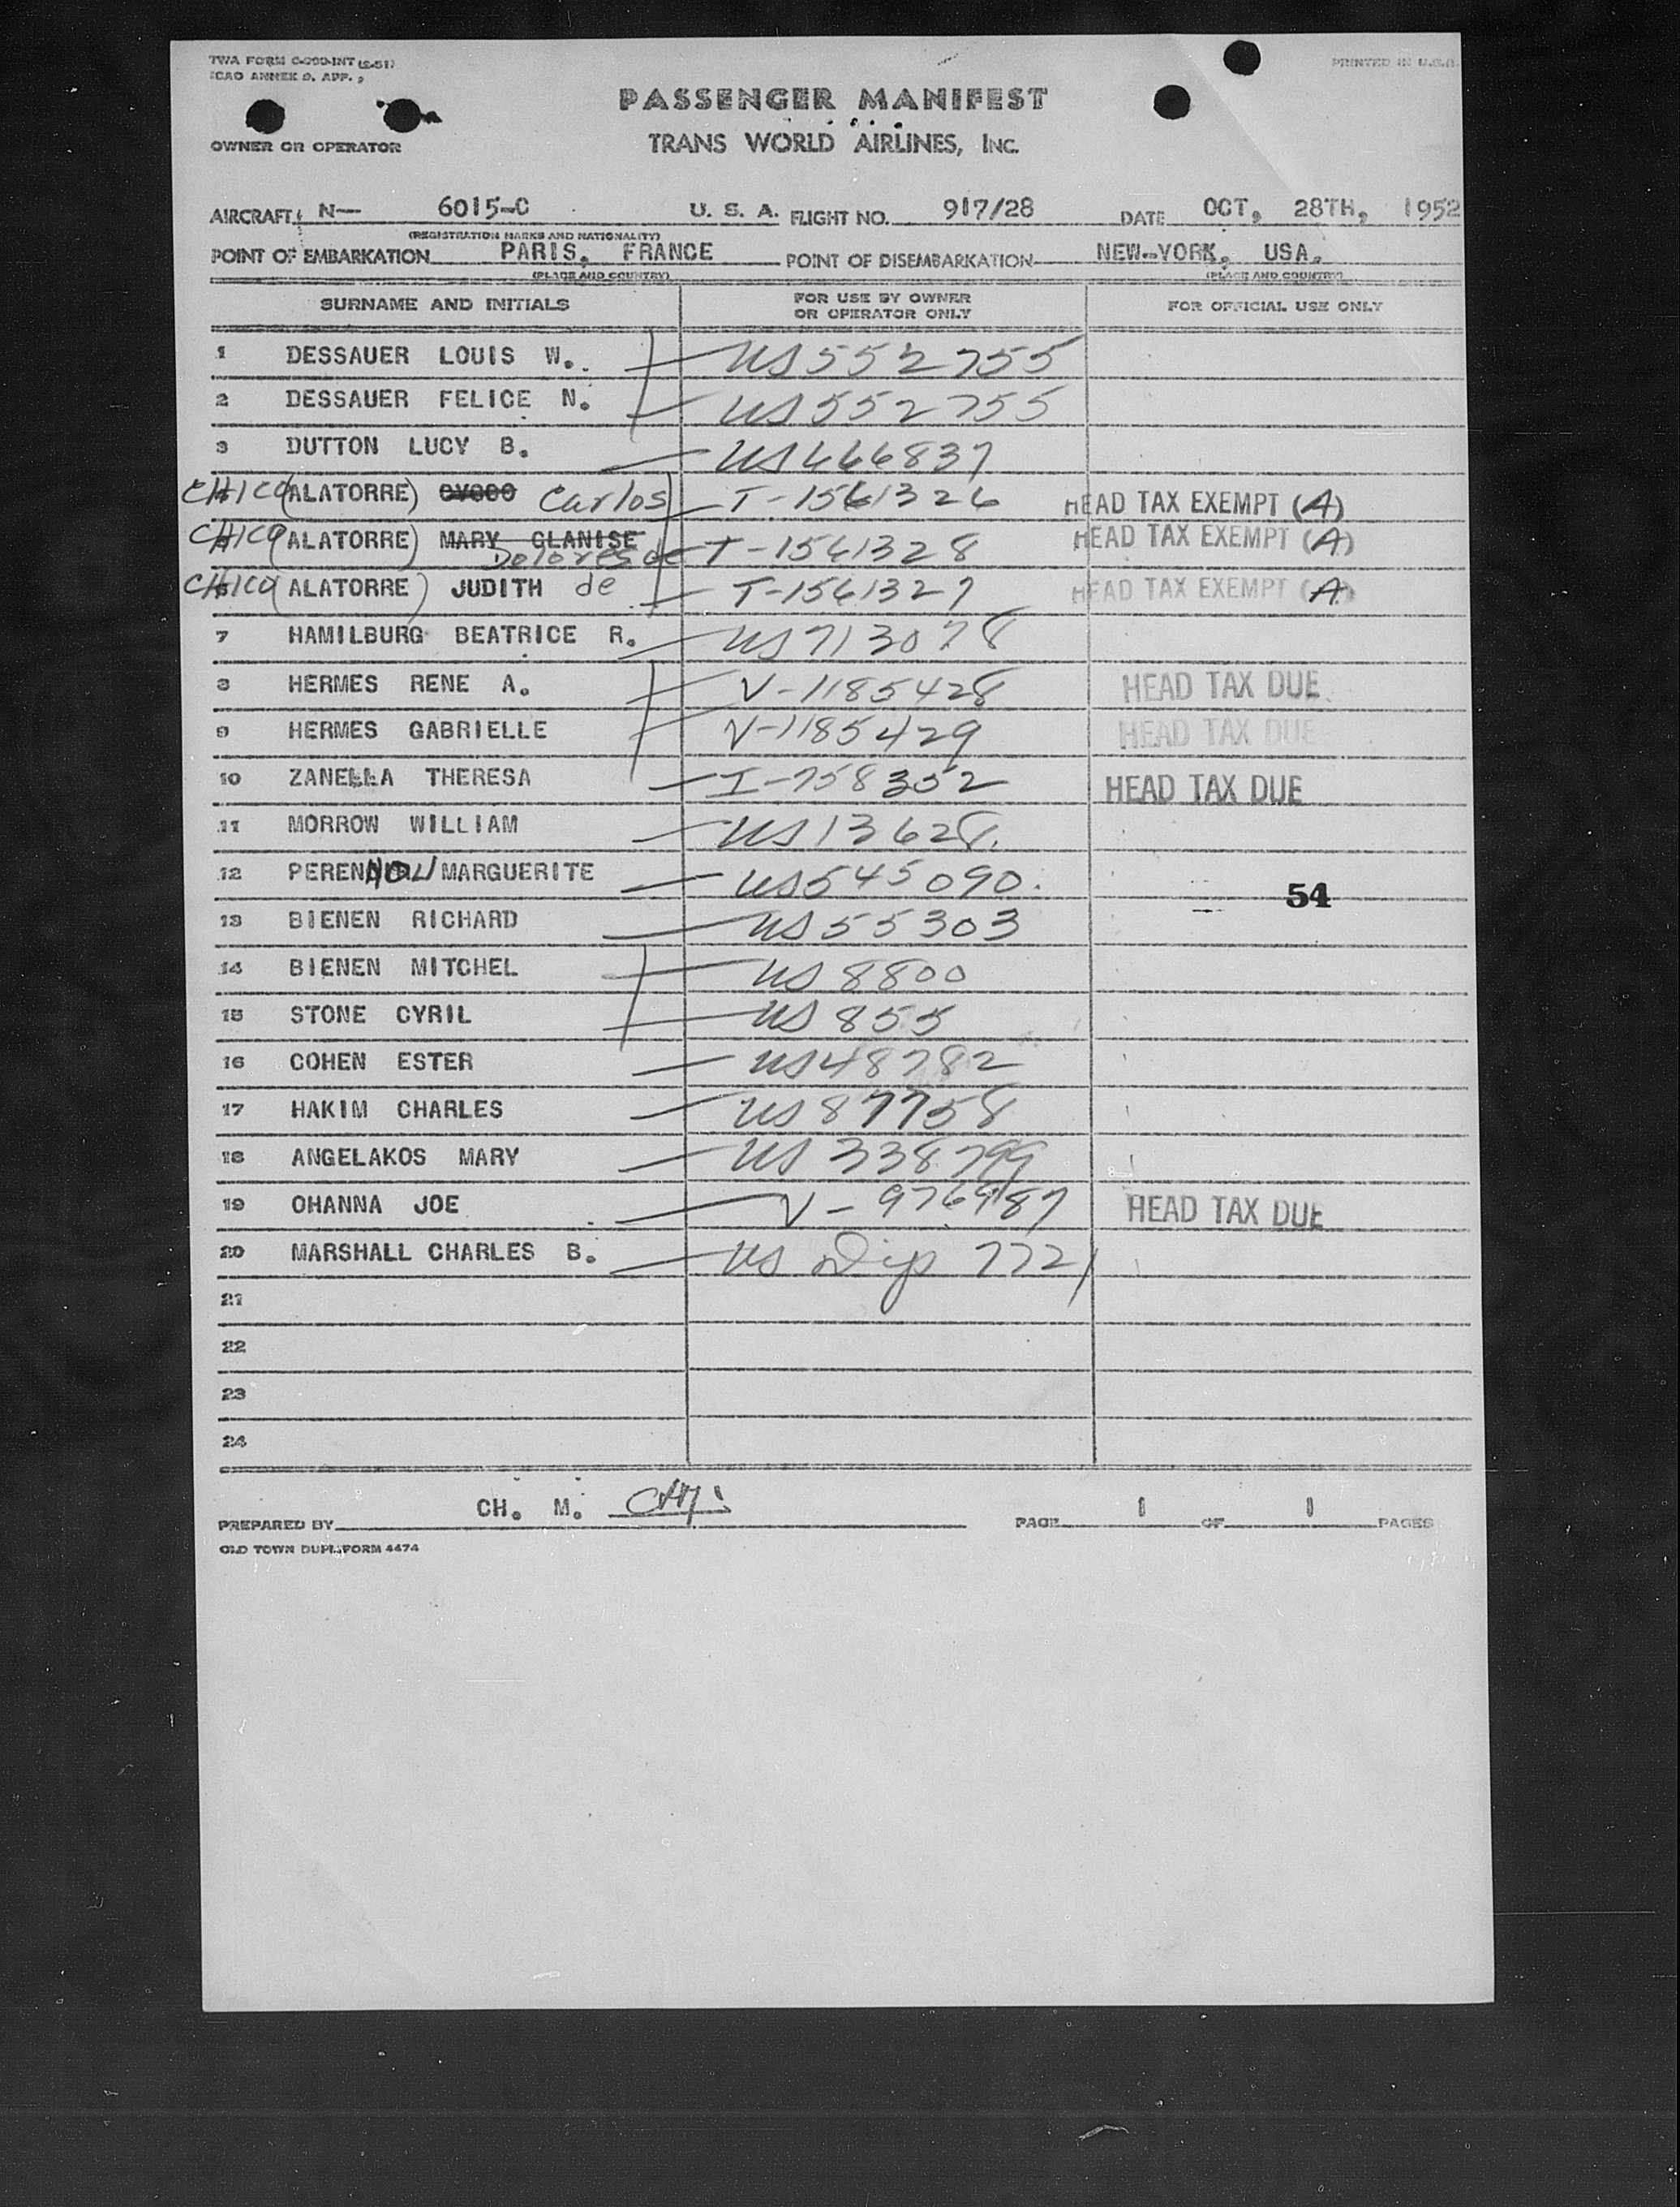 TWA FORM C-990-INT (2-51)
ICAO ANNEX 9, APP. 3
PRINTED IN U.S.A.
PASSENGER MANIFEST
OWNER OR OPERATOR
TRANS WORLD AIRLINES, INC.
AIRCRAFT: N— 6015-C U. S. A. FLIGHT NO. 917/28 DATE OCT, 28TH, 1952
(REGISTRATION MARKS AND NATIONALITY)
POINT OF EMBARKATION PARIS, FRANCE POINT OF DISEMBARKATION NEW-YORK, USA.
(PLACE AND COUNTRY) (PLACE AND COUNTRY)
SURNAME AND INITIALS FOR USE BY OWNER OR OPERATOR ONLY FOR OFFICIAL USE ONLY
1 DESSAUER LOUIS W. US 552755
2 DESSAUER FELICE N. US 552755
3 DUTTON LUCY B. US 466837
CHICO (ALATORRE) Carlos T-1561326 HEAD TAX EXEMPT (A)
CHICO (ALATORRE) MARY CLANISE Dolores de T-1561328 HEAD TAX EXEMPT (A)
CHICO (ALATORRE) JUDITH de T-1561327 HEAD TAX EXEMPT (A)
7 HAMILBURG BEATRICE R. US 713078
8 HERMES RENE A. V-1185428 HEAD TAX DUE
9 HERMES GABRIELLE V-1185429 HEAD TAX DUE
10 ZANELLA THERESA I-758352 HEAD TAX DUE
11 MORROW WILLIAM US 13628.
12 PERENNOU MARGUERITE US 545090. 54
13 BIENEN RICHARD US 55303
14 BIENEN MITCHEL US 8800
15 STONE CYRIL US 855
16 COHEN ESTER US 48782
17 HAKIM CHARLES US 87758
18 ANGELAKOS MARY US 338799
19 OHANNA JOE V-976987 HEAD TAX DUE
20 MARSHALL CHARLES B. US Dip 7721
21
22
23
24
PREPARED BY CH. M. PAGE 1 OF 1 PAGES
OLD TOWN DUPLIFORM 4474